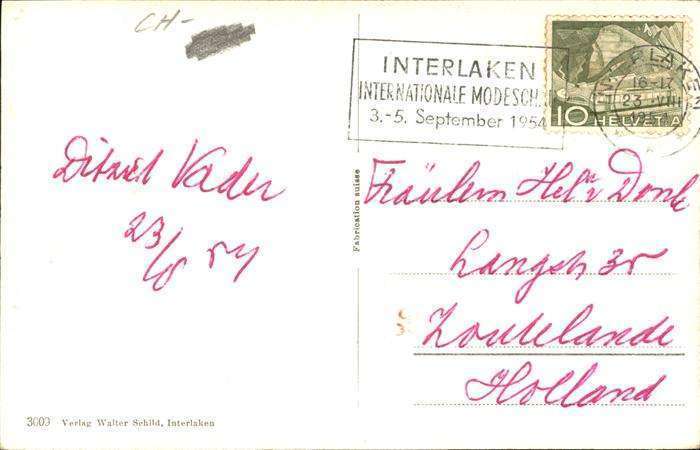 CH-
INTERLAKEN
INTERNATIONALE MODESCH
3.-5. September 1954
10 HELVETIA
INTERLAKEN
16-17
23 VIII
Vader
23/8 54
Fabrication suisse
Fräulein
Langstr 35
Zoutelande
Holland
3009 Verlag Walter Schild, Interlaken